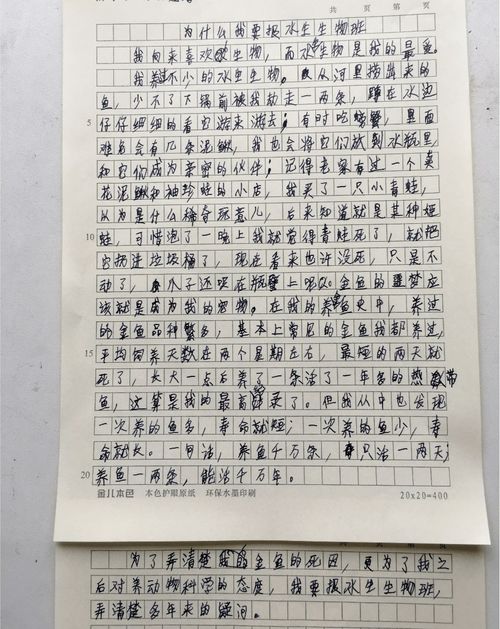 共 页 第 页
为什么我要报水生生物班
我向来喜欢生物,而水生物是我的最爱。
我养过不少的水生生物。从河里捞出来的
鱼,少不了下锅前被我劫走一两条,蹲在水边
5 仔仔细细的看它游来游去;有时吃螃蟹,里面
难免会有几条泥鳅,我也会将它们放到水瓶里
和它们成为亲密的伙伴;记得老家有过一个卖
花泥鳅和袖珍蛙的小店,我买了一只小青蛙,
以为是什么稀奇玩意儿,后来知道就是某种姬
10 蛙,可惜泡了一晚上我就觉得青蛙死了,就把
它扔进垃圾桶了,现在看来也许没死,只是不
动了,个子还吸在瓶壁上呢。金鱼的噩梦应
该就是成为我的宠物。在我的养鱼史中,养过
的金鱼品种繁多,基本上常见的金鱼我都养过,
15 平均饲养天数在两个星期左右,最短的两天就
死了,长大一点后养了一条活了一年多的热带
鱼,这算是我的最高纪录了。但我从中也发现
一次养的鱼多,寿命就短;一次养的鱼少,寿
命就长。一句话,养鱼千万条,只活一两天;
20 养鱼一两条,能活千万年。
金儿本色 本色护眼原纸 环保水墨印刷 20x20=400
为了弄清楚我的金鱼的死因,更为了我之
后对养动物科学的态度,我要报水生生物班,
弄清楚多年来的疑问。